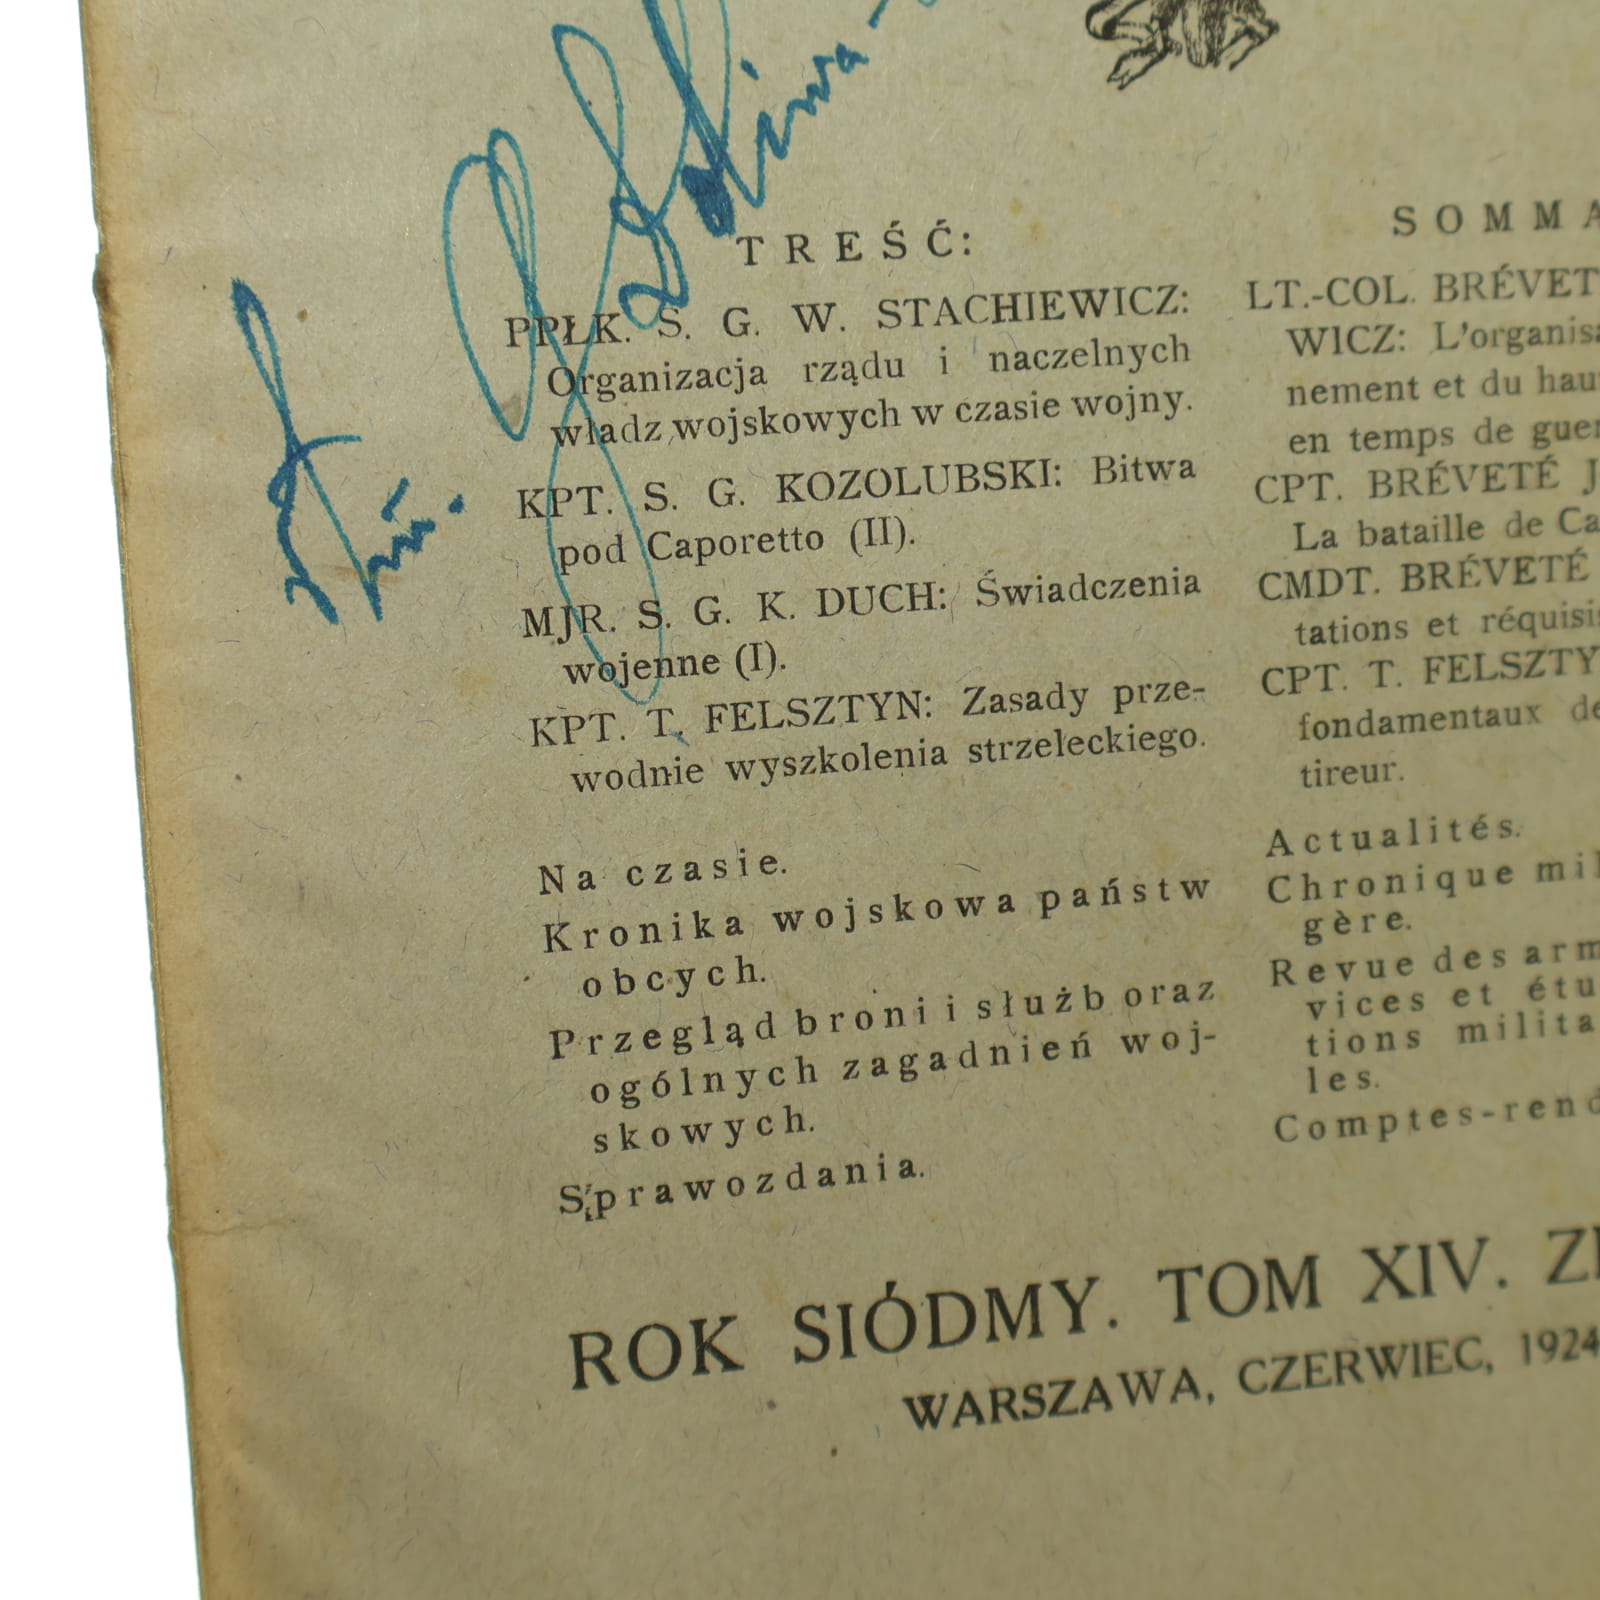 TREŚĆ:
PPŁK. S. G. W. STACHIEWICZ:
Organizacja rządu i naczelnych
władz wojskowych w czasie wojny.
KPT. S. G. KOZOLUBSKI: Bitwa
pod Caporetto (II).
MJR. S. G. K. DUCH: Świadczenia
wojenne (I).
KPT. T. FELSZTYN: Zasady prze-
wodnie wyszkolenia strzeleckiego.
Na czasie.
Kronika wojskowa państw
obcych.
Przegląd broni i służb oraz
ogólnych zagadnień woj-
skowych.
Sprawozdania.
SOMMA
LT.-COL. BRÉVET
WICZ: L'organisa
nement et du hau
en temps de guer
CPT. BRÉVETÉ J
La bataille de Ca
CMDT. BRÉVETÉ
tations et réquisi
CPT. T. FELSZTY
fondamentaux de
tireur.
Actualités.
Chronique mil
gère.
Revue des arm
vices et étu
tions milita
les.
Comptes-rend
ROK SIÓDMY. TOM XIV. ZE
WARSZAWA, CZERWIEC, 1924